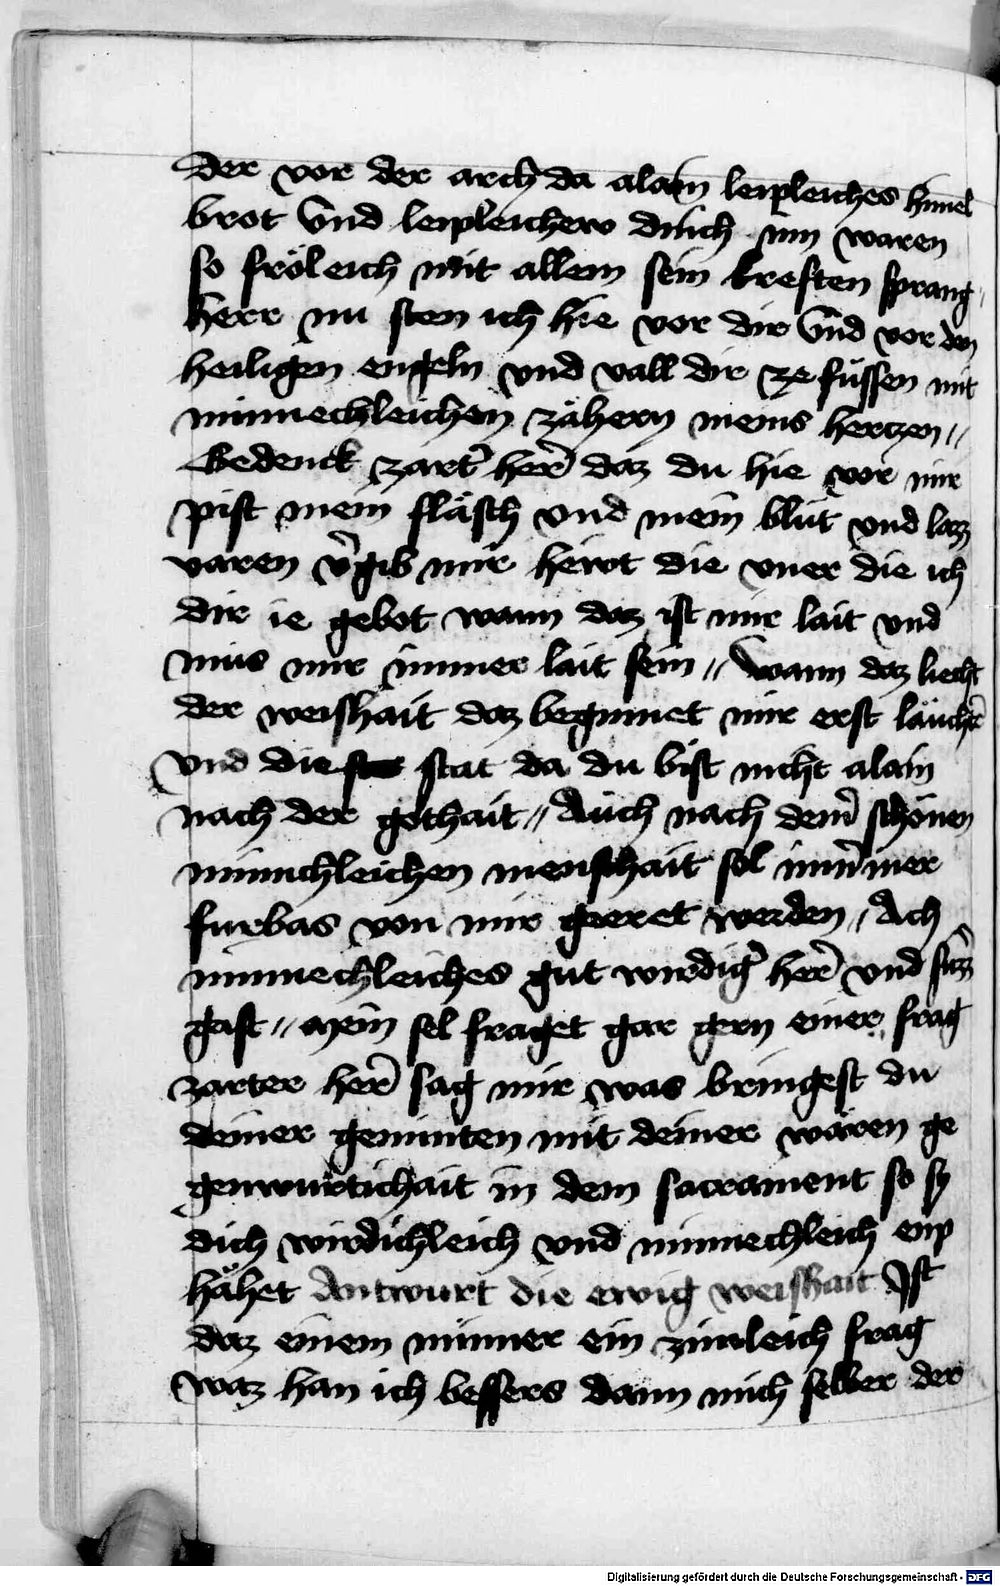 der vor der arch da alain leipleiches himel
brot vnd leipleichew dinch inn waren
so fröleich mit allem sein kreften sprang
herr nu sten ich hie vor dir vnd vor den
heiligen engeln vnd vall dir ze füssen mit
minnechleichen zähern meins hertzen //
Bedenck zarter her daz du hie vor mir
pist mein fläsch vnd mein blüt vnd laz
varen vergib mir hewt die vner die ich
dir ie gebot wann daz ist mir lait vnd
mus mir immer lait sein // Wann daz liecht
der weishait daz beginnet mir erst läuchten
vnd die stat da du bist nicht alain
nach der gothait // Auch nach dem schönen
minnchleichen menschait sol immmer
furbas von mir geeret werden / Ach
minnechleiches gut wirdiger her vnd süzz
gast // mein sel fraget gar gern einer frag
zarter her sag mir was bringest du
deiner geminten mit deiner waren ge
genwurtichait in dem sacrament so sy
dich wirdichleich vnd minnechleich enp
hähet Antwurt die ewig weishait Ist
daz einem minner ein zimleich frag
waz han ich bessers dann mich selber der
Digitalisierung gefördert durch die Deutsche Forschungsgemeinschaft - DFG